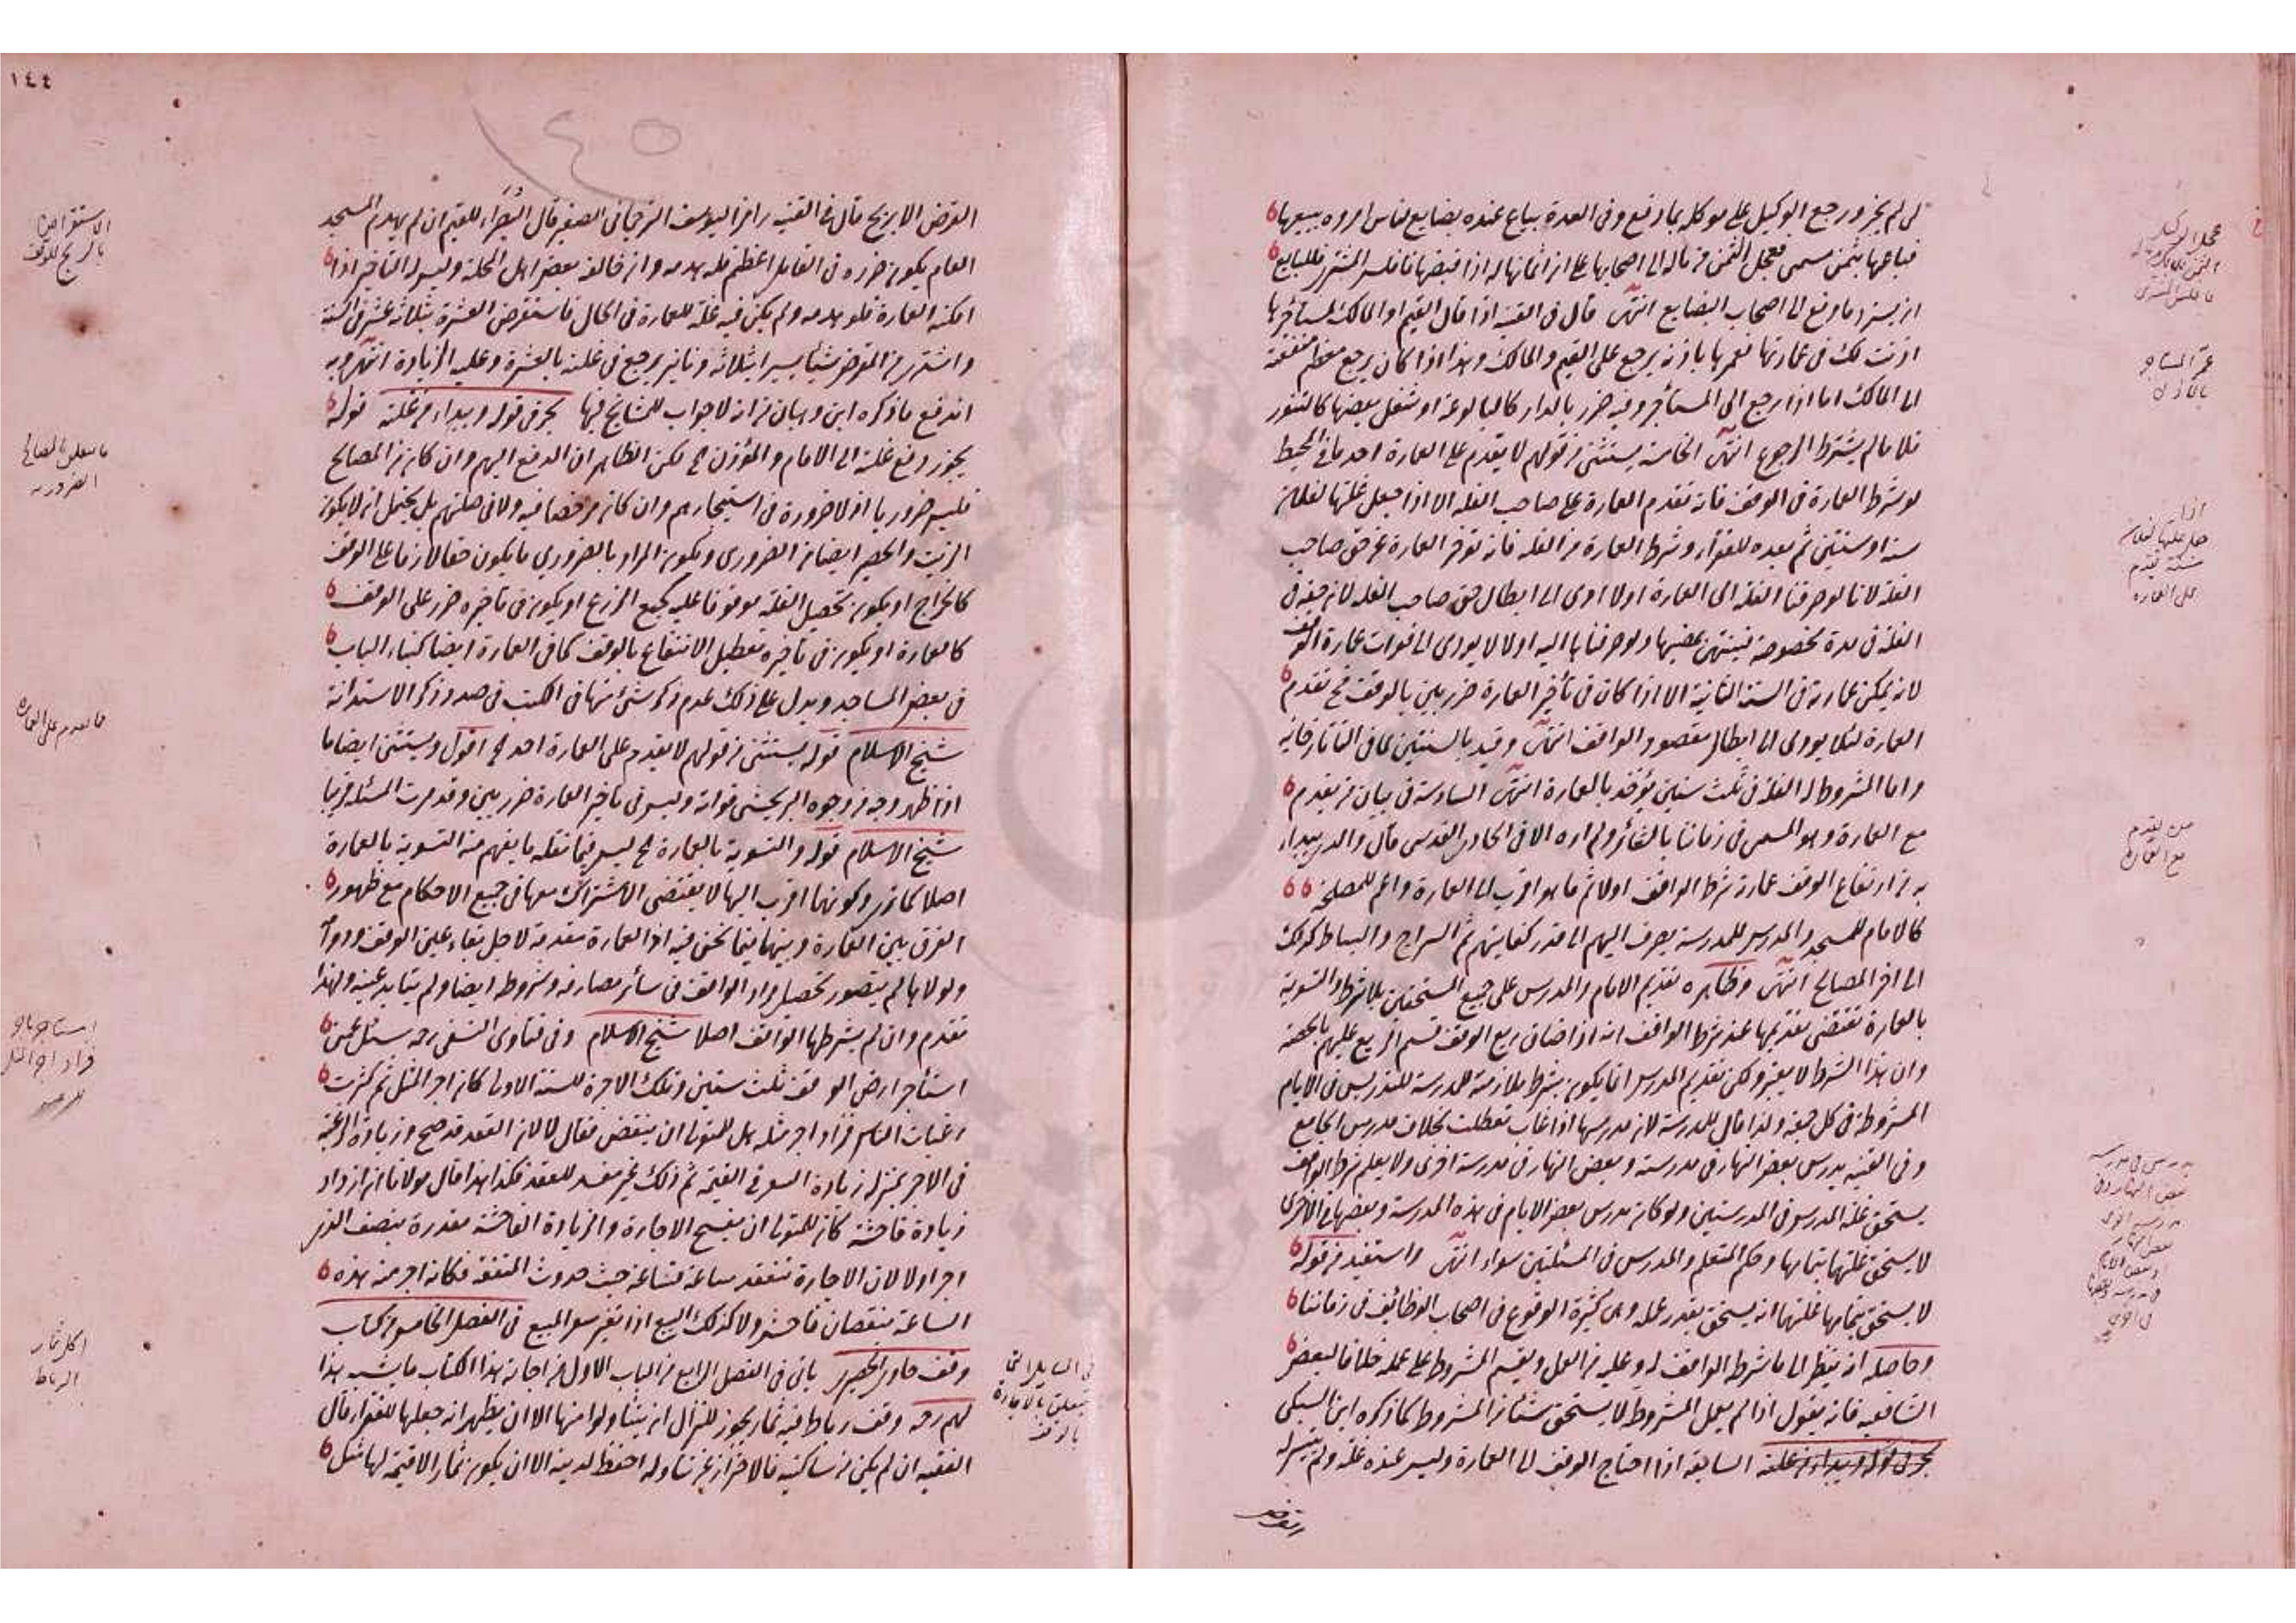 لى لم يجز ورجع الوكيل على موكله بما دفع وفى العدة بياع عنده بضايع لناس امروه ببيعها
فباعها بثمن مسمى فعجل الثمن من ماله الى اصحابها على ان اثمانها له اذا قبضها فافلس المشترى فللبايع
ان يسترد ما دفع الى اصحاب البضايع انتهى قال فى القنية اذا قال القيم او المالك لمستأجرها
اذنت لك فى عمارتها فعمرها باذنه يرجع على القيم والمالك وهذا اذا كان يرجع معظم منفعته
الى المالك اما اذا رجع الى المستأجر وفيه ضرر بالدار كالبالوعة او شغل بعضها كالتنور
فلا ما لم يشترط الرجوع انتهى الخامسة يستثنى من قولهم لا يقدم على العمارة احد ما فى المحيط
لو شرط العمارة فى الوقف فانه تقدم العمارة على صاحب الغلة الا اذا جعل غلتها لفلان
سنة او سنتين ثم بعده للفقراء وشرط العمارة من الغلة فانه تؤخر العمارة عن حق صاحب
الغلة لانا لو صرفنا الغلة الى العمارة اولا ادى الى ابطال حق صاحب الغلة لان حقه فى
الغلة فى مدة مخصوصة فينتهى بمضيها ولو صرفناها اليه اولا لا يودى الى فوات عمارة الوقف
لانه يمكن عمارته فى السنة الثانية الا اذا كان فى تأخير العمارة ضرر بين بالوقف فح تقدم
العمارة لئلا يودى الى ابطال مقصود الواقف انتهى وقيد بالسنتين لما فى التاتارخانية
واما المشروط له الغلة فى ثلث سنين يؤخذ بالعمارة انتهى السادسة فى بيان من يقدم
مع العمارة وهو المسمى فى زماننا بالشعائر ولم اره الا فى الحاوى القدسى قال والذى يبدأ
به من ارتفاع الوقف عمارته شرط الواقف اولا ثم ما هو اقرب الى العمارة واعم للمصلحة
كالامام للمسجد والمدرس للمدرسة يصرف اليهم الى قدر كفايتهم ثم السراج والبساط كذلك
الى اخر المصالح انتهى وظاهره تقديم الامام والمدرس على جميع المستحقين بلا شرط والتسوية
بالعمارة تقتضى تقديمها عند شرط الواقف انه اذا ضاق ريع الوقف قسم الريع عليهم بالحصة
وان هذا الشرط لا يعتبر ولكن تقديم المدرس انما يكون بشرط ملازمته للمدرسة للتدريس فى الايام
المشروطة فى كل جمعة ولذا قال للمدرسة لان مدرسها اذا غاب تعطلت بخلاف مدرس الجامع
وفى القنية يدرس بعض النهار فى مدرسة وبعض النهار فى مدرسة اخرى ولا يعلم شرط الواقف
يستحق غلة المدرس فى المدرستين ولو كان يدرس بعض الايام فى هذه المدرسة وبعضها فى الاخرى
لا يستحق غلتها بتمامها وحكم المتعلم والمدرس فى المسئلتين سواء انتهى واستفيد من قوله
لا يستحق بتمامها غلتهما انه يستحق بقدر عمله وهى كثيرة الوقوع فى اصحاب الوظائف فى زماننا
وحاصله ان ينظر الى ما شرط الواقف له وعليه من العمل ويقسم المشروط على عمله خلافا لبعض
الشافعيه فانه يقول اذا لم يعمل المشروط لا يستحق شيئا من المشروط كما ذكره ابن السبكى
السابعة اذا احتاج الوقف الى العمارة وليس عنده غلة ولم يتيسر له
القرض
عمر المستأجر
اذا
جعل غلتها لفلان
سنة يقدم
على العمارة
من يقدم
مع العمارة
١٤٤
القرض الا بربح قال فى القنية رامزا ليوسف الترجمانى الصغير قال للقيم ان لم يهدم المسجد
العام يكون ضرره فى القابل اعظم فله هدمه وان خالفه بعض اهل المحلة وليس له التأخير اذا
امكنه العمارة فلو هدمه ولم يكن فيه غلة للعمارة فى الحال فاستقرض العشرة بثلاثة عشر فى السنة
واشترى من المقرض شيئا يسيرا بثلاثة دنانير يرجع فى غلته بالعشرة وعليه الزيادة انتهى وبه
اندفع ما ذكره ابن وهبان من انه لا جواب للمشايخ فيها بحر فى قوله ويبدأ من غلته قوله
يجوز دفع غلته الى الامام والمؤذن الخ لكن الظاهر ان الدفع اليهم وان كان من المصالح
فليس ضروريا اذ لا ضرورة فى استيجارهم وان كان مرخصا فيه ولا فى صلتهم بل يحتمل ان لا يكون
الزيت والحصير ايضا من الضرورى ويكون المراد بالضرورى ما يكون حقا لازما على الوقف
كالخراج او يكون تحصيل الغلة موقوفا عليه كجمع الزرع او يكون فى تأخيره ضرر على الوقف
كالعمارة او يكون فى تأخيره تعطيل الانتفاع بالوقف كما فى العمارة ايضا كبناء الباب
فى بعض المساجد ويدل على ذلك عدم ذكر شئ منها فى الكتب فى صدد ذكر الاستدانة
شيخ الاسلام قوله يستثنى من قولهم لا يقدم على العمارة احد الخ اقول ويستثنى ايضا ما
اذا ظهر وجه من وجوه البر يخشى فواته وليس فى تأخير العمارة ضرر بين وقد مرت المسئلة قريبا
شيخ الاسلام قوله والتسوية بالعمارة الخ ليس فيما نقله ما يفهم منه التسوية بالعمارة
اصلا كما ترى وكونهما اقرب اليها لا يقتضى الاشتراك معها فى جميع الاحكام مع ظهور
الفرق بين العمارة وبينهما فيما نحن فيه اذ العمارة مقدمة لاجل بقاء عين الوقف ودوامه
ولولاها لم يتصور تحصيل مراد الواقف فى سائر مصارفه وشروطه ايضا ولم يتأيد عينه ولهذا
تقدم وان لم يشرطها الواقف اصلا شيخ الاسلام وفى فتاوى النسفى رحمه سئل عمن
استأجر ارض الوقف ثلث سنين وتلك الاجرة للسنة الاولى كان اجر المثل ثم كثرت
رغبات الناس فزاد اجر مثله هل للمتولى ان ينقض فقال لا لان العقد قد صح وزيادة الرغبة
فى الاجر بمنزلة زيادة السعر فى القيمة ثم ذلك غير مفسد للعقد فكذا هذا قال مولانا ان ازداد
زيادة فاحشة كان للمتولى ان يفسخ الاجارة والزيادة الفاحشة مقدرة بنصف الذى
اجر اولا لان الاجارة تنعقد ساعة فساعة حيث حدوث المنفعة فكانه اجر منه هذه
الساعة بنقصان فاحش ولا كذلك البيع اذا تغير سعر المبيع فى الفصل الخامس من كتاب
وقف حاوى الحصيرى يأتى فى الفصل الرابع من الباب الاول من اجارة هذا الكتاب ما يشبه هذا
وقف رباط فيه ثمار يجوز للنزال ان يتناولوا منها الا ان يظهر انه جعلها للفقراء قال
الفقيه ان لم يكن من ساكنيه فالاحتراز عن تناوله احفظ لدينه الا ان يكون ثمارا لا قيمة لها مثل
الاستقراض
بالربح للوقف
ما يتعلق بالمصالح
الضرورية
ما يقدم على العمارة
فى المسايل التى
تتعلق بالاجارة
اكل ثمار
الرباط